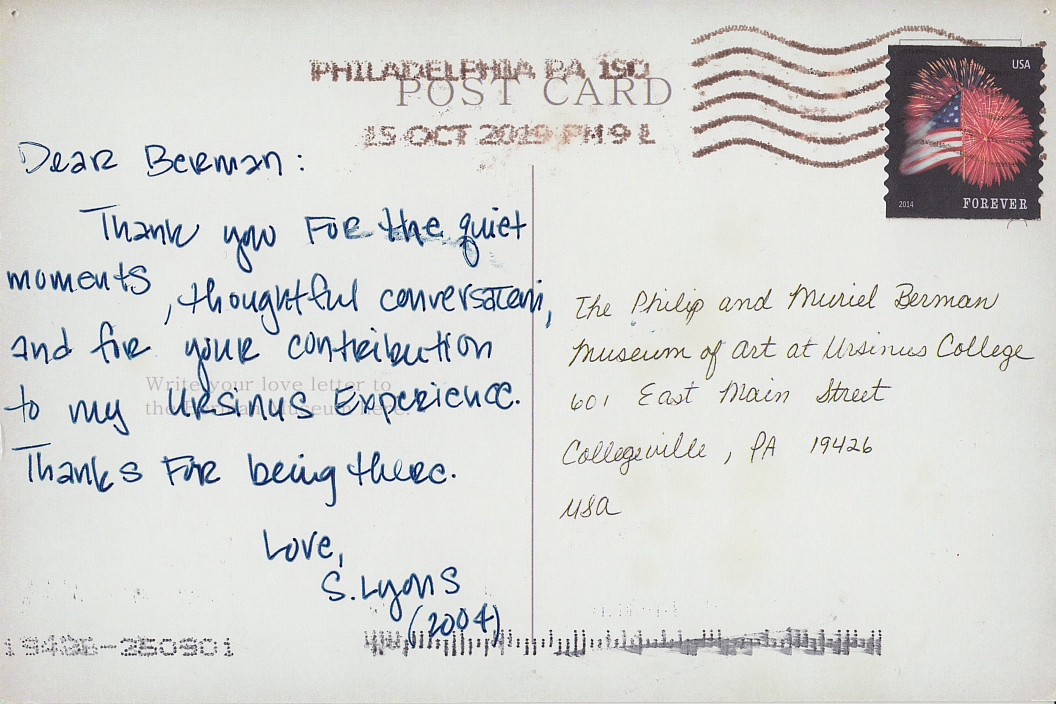 PHILADELPHIA PA 190
POST CARD
15 OCT 2019 PM 9 L
USA
2014 FOREVER
Dear Berman:
Thank you for the quiet
moments, thoughtful conversations,
and for your contribution
to my Ursinus Experience.
Thanks for being there.
Love,
S. Lyons
(2004)
Write your love letter to
the Berman Museum here.
The Philip and Muriel Berman
Museum of Art at Ursinus College
601 East Main Street
Collegeville, PA 19426
USA
19426-250901